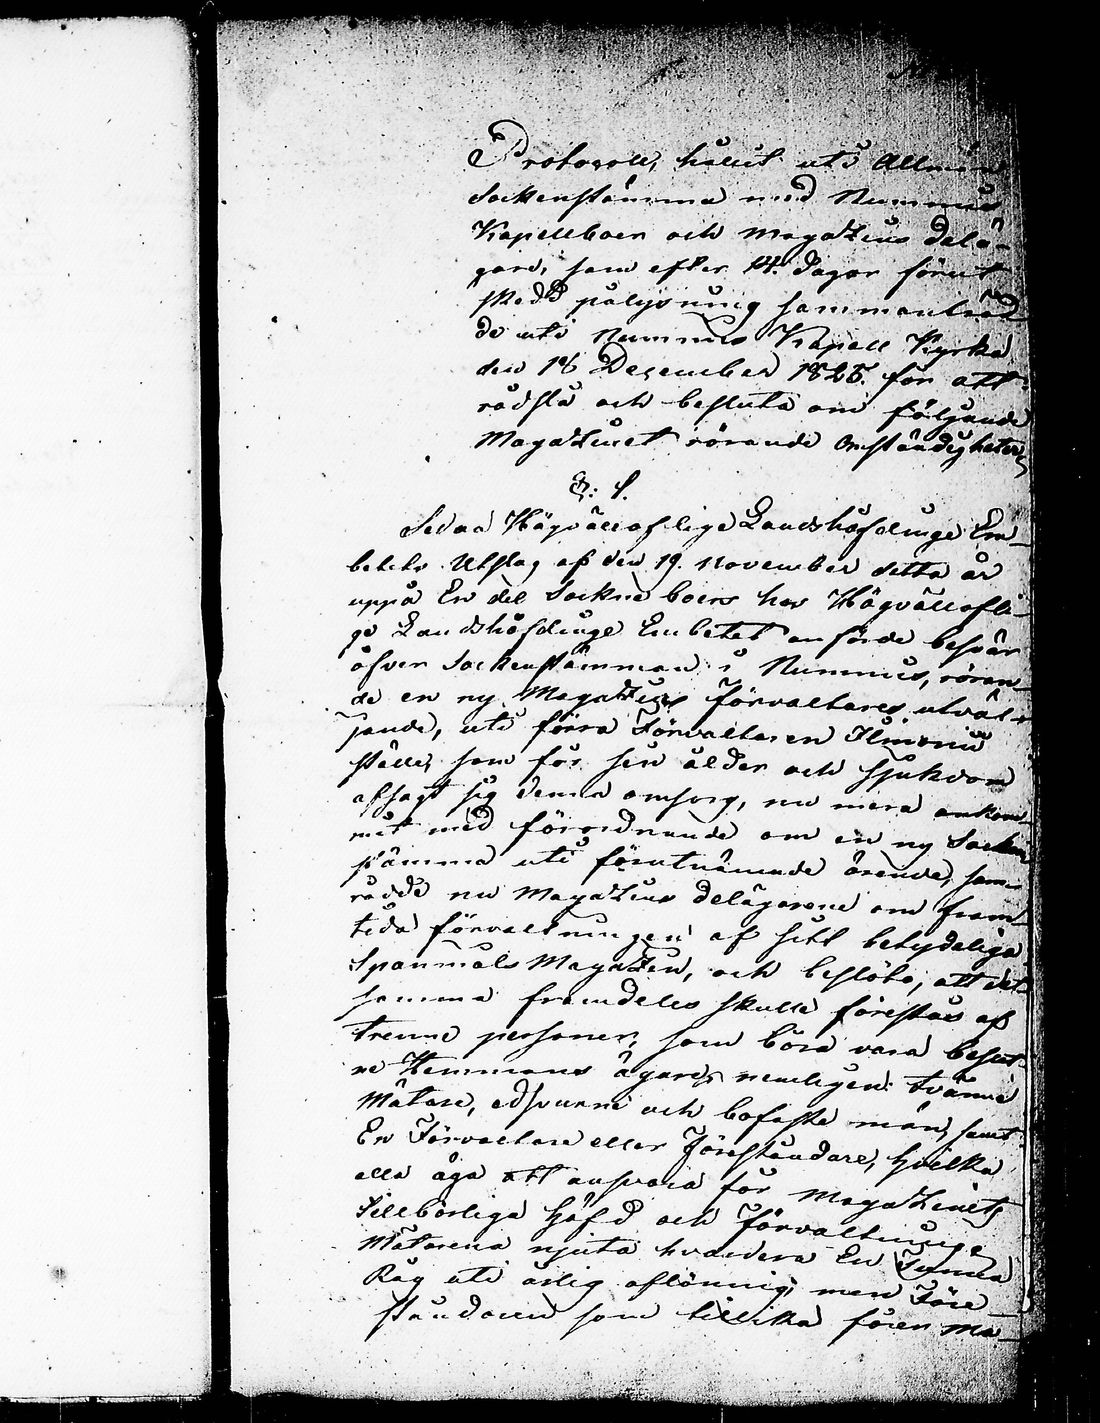 Protocoll, hållit uti Allmän
Sockenstämma med Nummis
Kapellboer och Magazins delä-
gare, som efter 14. dagar förut
skedd pålysning sammanträd
de uti Nummis Kapell Kyrka
den 18 December 1825. för att
rådslå och besluta om följande
Magazinet rörande Omständigheter,
§: 1.
Sedan Högvällofliga Landshöfdinge Em-
betets Utslag af den 19. November detta år
uppå En del Sockne boers hos Högvällofli-
ge Landshöfdinge Embetet anförde besvär
öfver Sockenstämman i Nummis, röran-
de en ny Magazins förvaltares utväl-
jande, uti förra Förvaltaren Ilmonis
ställe, som för sin ålder och sjukdom
afsagt sig denna omsorg, nu mera ankom-
mit med förordnande om en ny Socken
stämma uti förutnämnde ärende, sam-
rådde nu Magazins delägarene om fram-
tida förvaltningen af sitt betydeliga
Spanmåls Magazin, och beslöto, att det-
samma framdeles skulle förestås af
trenne personer, som böra vara besut-
ne Hemmans ägare, nemligen: tvänne
Mätare, edsvurne och bofaste män, samt
En Förvaltare eller Föreståndare, hvilka
alla äga att ansvara för Magazinets
tillbörliga häfd och förvaltninge
Mätarena njuta hvardera En Tunna
Råg uti årlig aflönning, men Före
ståndaren som tillika förer Ma-